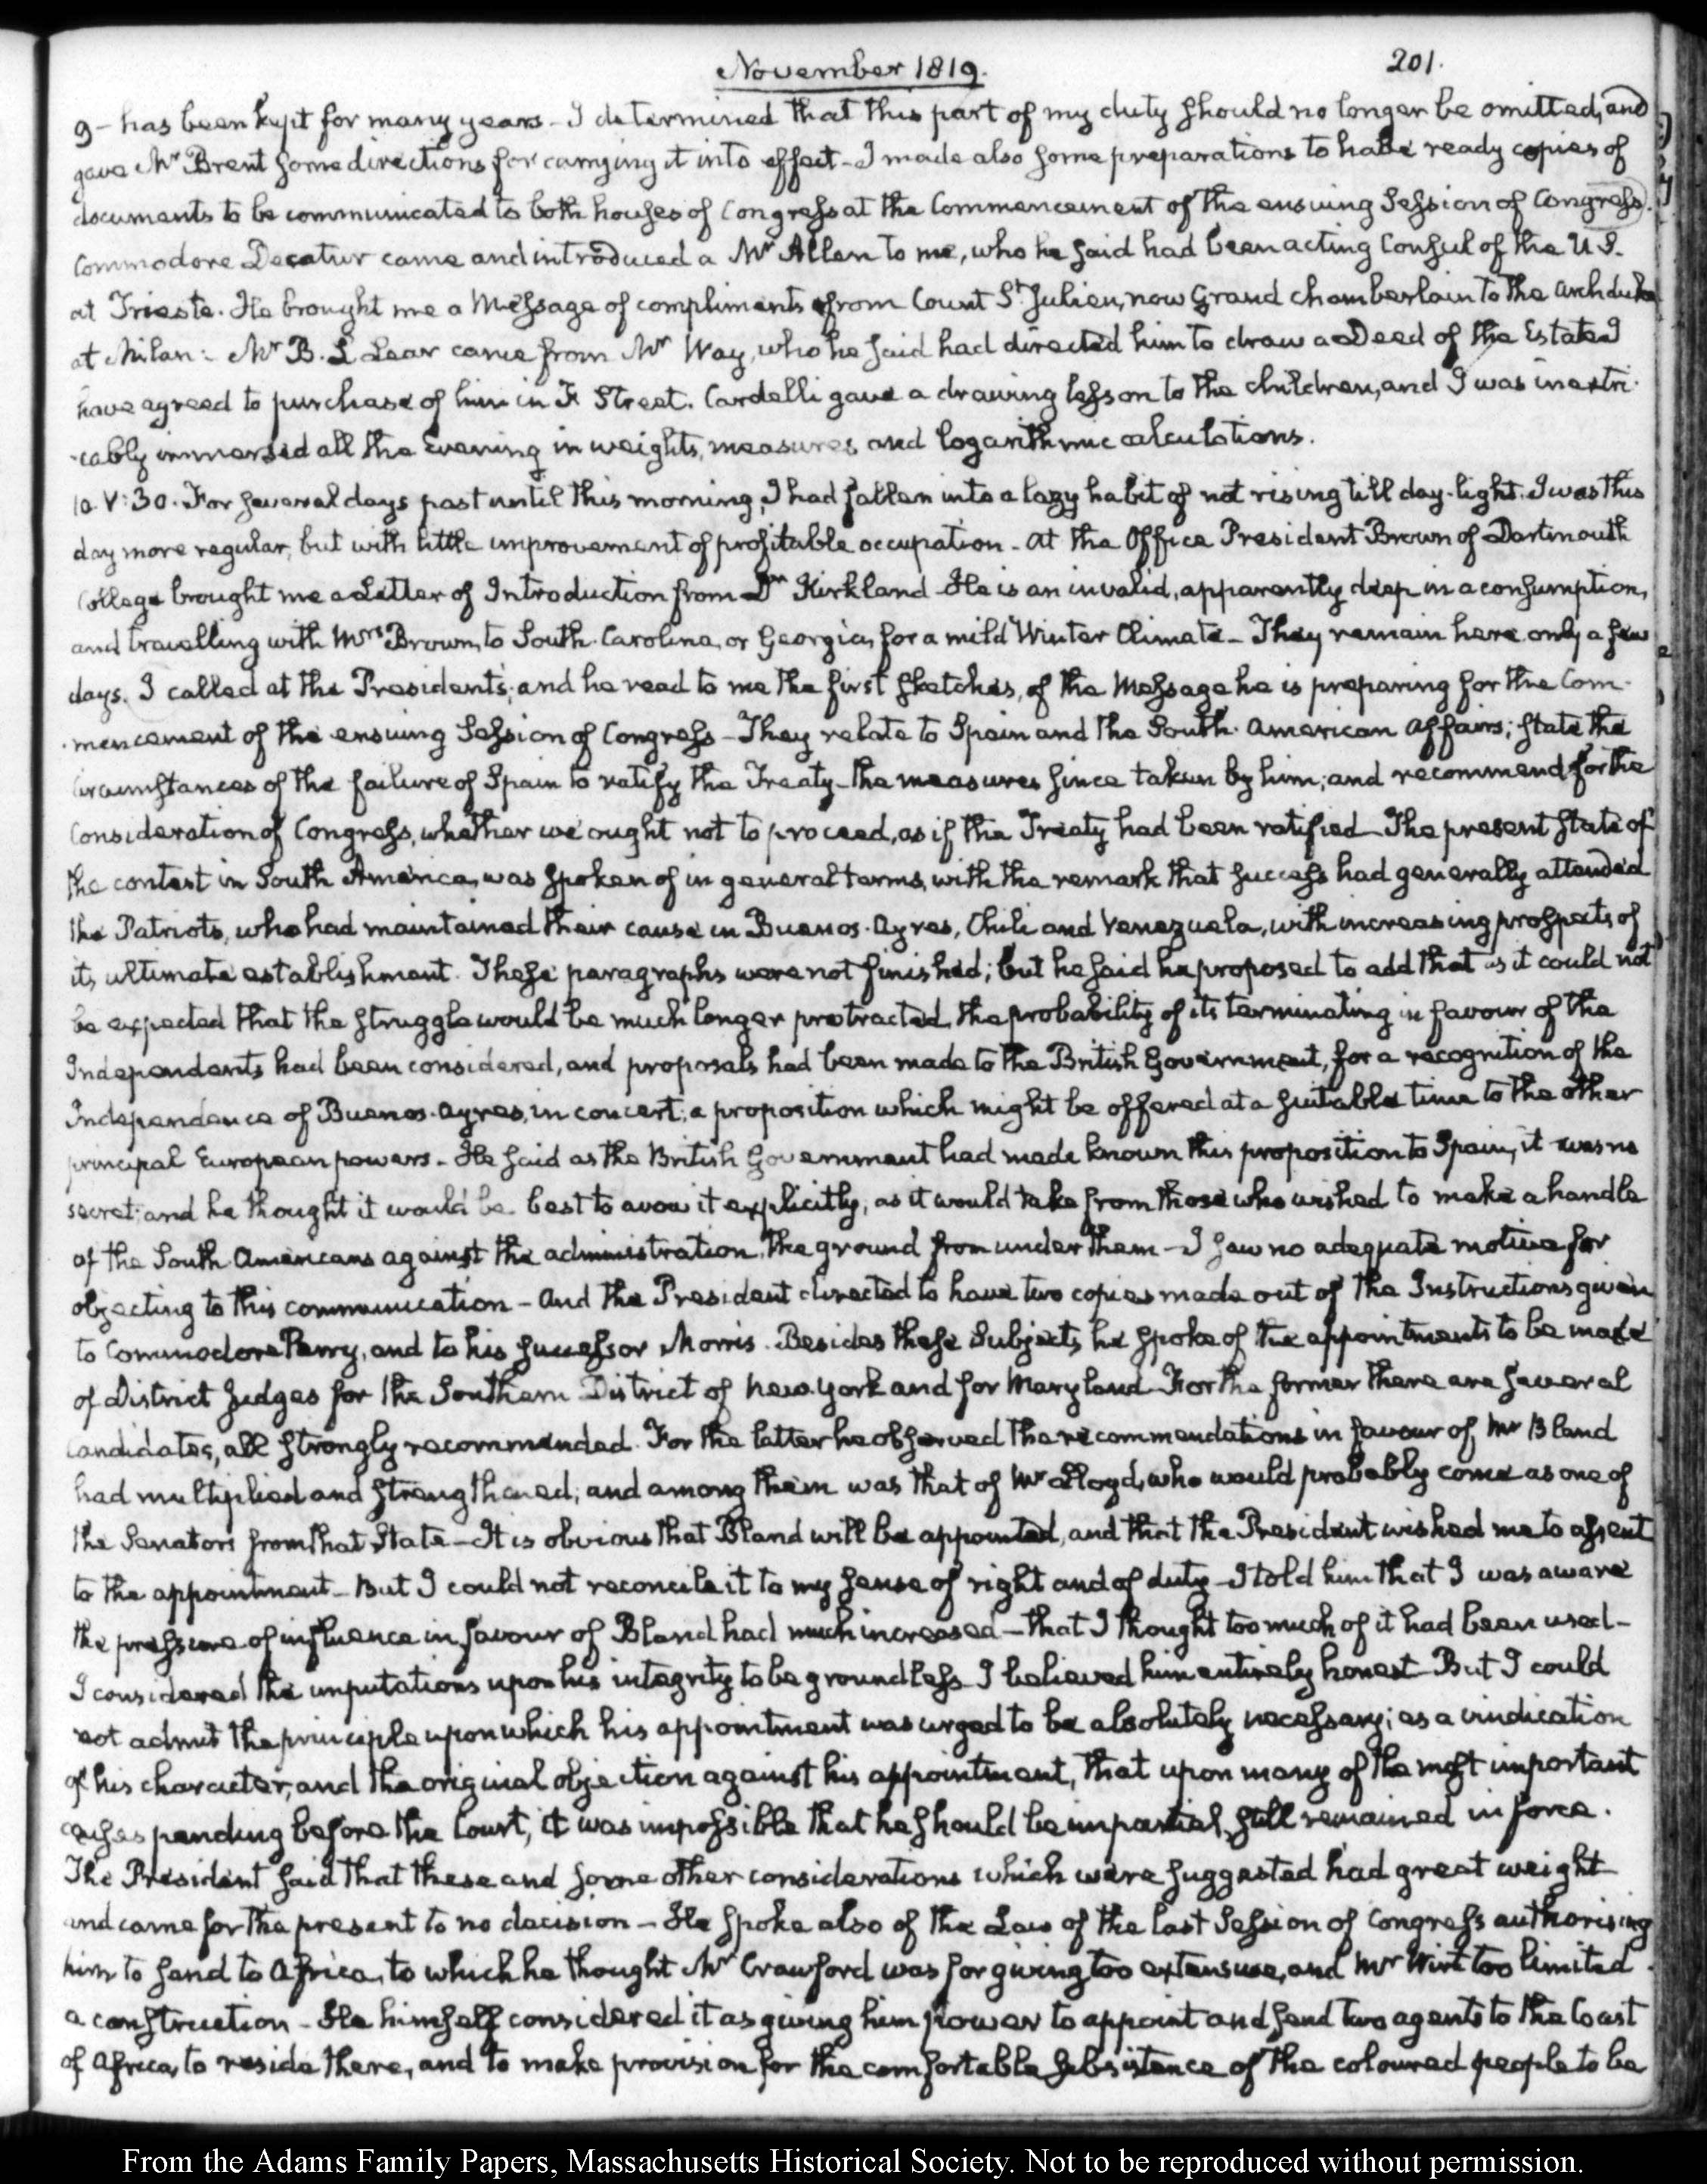 November 1819.
201.
9 - has been kept for many years - I determined that this part of my duty should no longer be omitted, and
gave Mr Brent some directions for carrying it into effect - I made also some preparations to have ready copies of
documents to be communicated to both houses of Congress at the Commencement of the ensuing Session of Congress.
Commodore Decatur came and introduced a Mr Allen to me, who he said had been acting Consul of the U.S.
at Trieste. He brought me a Message of compliments from Count St. Julien, now Grand chamberlain to the Archduke
at Milan: Mr B. L Lear came from Mr Way, who he said had directed him to draw a Deed of the Estate I
have agreed to purchase of him in F. Street. Cardelli gave a drawing lesson to the children, and I was inextri-
-cably immersed all the Evening in weights, measures and logarithmic calculations.
10. V:30. For several days past until this morning, I had fallen into a lazy habit of not rising till day-light. I was this
day more regular, but with little improvement of profitable occupation - At the Office President Brown of Dartmouth
College brought me a Letter of Introduction from Dr Kirkland - He is an invalid, apparently deep in a consumption,
and travelling with Mrs Brown, to South-Carolina, or Georgia, for a mild Winter Climate - They remain here only a few
days. I called at the President's; and he read to me the first sketches, of the Message he is preparing for the Com-
-mencement of the ensuing Session of Congress - They relate to Spain and the South-American affairs; state the
circumstances of the failure of Spain to ratify the Treaty - the measures since taken by him; and recommend for the
Consideration of Congress, whether we ought not to proceed, as if the Treaty had been ratified - The present state of
the contest in South America, was spoken of in general terms, with the remark that success had generally attended
the Patriots, who had maintained their cause in Buenos-Ayres, Chili and Venezuela, with increasing prospects of
its ultimate establishment. These paragraphs were not finished; but he said he proposed to add that as it could not
be expected that the struggle would be much longer protracted, the probability of its terminating in favour of the
Independents had been considered, and proposals had been made to the British Government, for a recognition of the
Independence of Buenos-Ayres, in concert; a proposition which might be offered at a suitable time to the other
principal European powers - He said as the British Government had made known this proposition to Spain, it was no
secret; and he thought it would be best to avow it explicitly, as it would take from those who wished to make a handle
of the South Americans against the administration, the ground from under them - I saw no adequate motive for
objecting to this communication - And the President directed to have two copies made out of the Instructions given
to Commodore Perry, and to his successor Morris. Besides these Subjects, he spoke of the appointments to be made
of District Judges for the Southern District of New-York and for Maryland. For the former there are several
candidates, all strongly recommended. For the latter he observed the recommendations in favour of Mr Bland
had multiplied and strengthened; and among them was that of Mr Lloyd, who would probably come as one of
the Senators from that State - It is obvious that Bland will be appointed, and that the President wished me to assent
to the appointment - But I could not reconcile it to my sense of right and of duty - I told him that I was aware
the pressure of influence in favour of Bland had much increased - that I thought too much of it had been used -
I considered the imputations upon his integrity to be groundless. I believed him entirely honest - But I could
not admit the principle upon which his appointment was urged to be absolutely necessary; as a vindication
of his character, and the original objection against his appointment, that upon many of the most important
causes pending before the Court, it was impossible that he should be impartial, still remained in force.
The President said that these and some other considerations which were suggested had great weight
and came for the present to no decision - He spoke also of the Law of the last Session of Congress authorising
him to send to Africa, to which he thought Mr Crawford was for giving too extensive, and Mr Wirt too limited
a construction - He himself considered it as giving him power to appoint and send two agents to the Coast
of Africa, to reside there, and to make provision for the comfortable subsistence of the coloured people to be
From the Adams Family Papers, Massachusetts Historical Society. Not to be reproduced without permission.